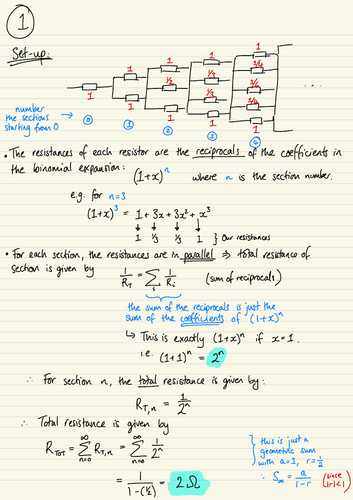 1
Set-up:
1 1 1 1
1 1/2 1/3 1/4
1 1 1/3 1/6
1/4
1
number
the sections
starting from 0
⓪ ① ② ③ ④
• The resistances of each resistor are the reciprocals of the coefficients in
the binomial expansion: (1+x)^n where n is the section number.
e.g. for n=3
(1+x)^3 = 1 + 3x + 3x² + x³
↓ ↓ ↓ ↓
1 1/3 1/3 1 } Our resistances
• For each section, the resistances are in parallel ⇒ total resistance of
section is given by
1/R_T = Σ_i 1/R_i (sum of reciprocals)
the sum of the reciprocals is just the
sum of the coefficients of (1+x)^n
↳ This is exactly (1+x)^n if x=1.
i.e. (1+1)^n = 2^n
∴ For section n, the total resistance is given by:
R_{T,n} = 1/2^n
∴ Total resistance is given by
R_TOT = Σ_{n=0}^∞ R_{T,n} = Σ_{n=0}^∞ 1/2^n
= 1/(1-(1/2)) = 2Ω
} this is just a
geometric sum
with a=1, r=1/2
∴ S_∞ = a/(1-r) (since |r|<1)